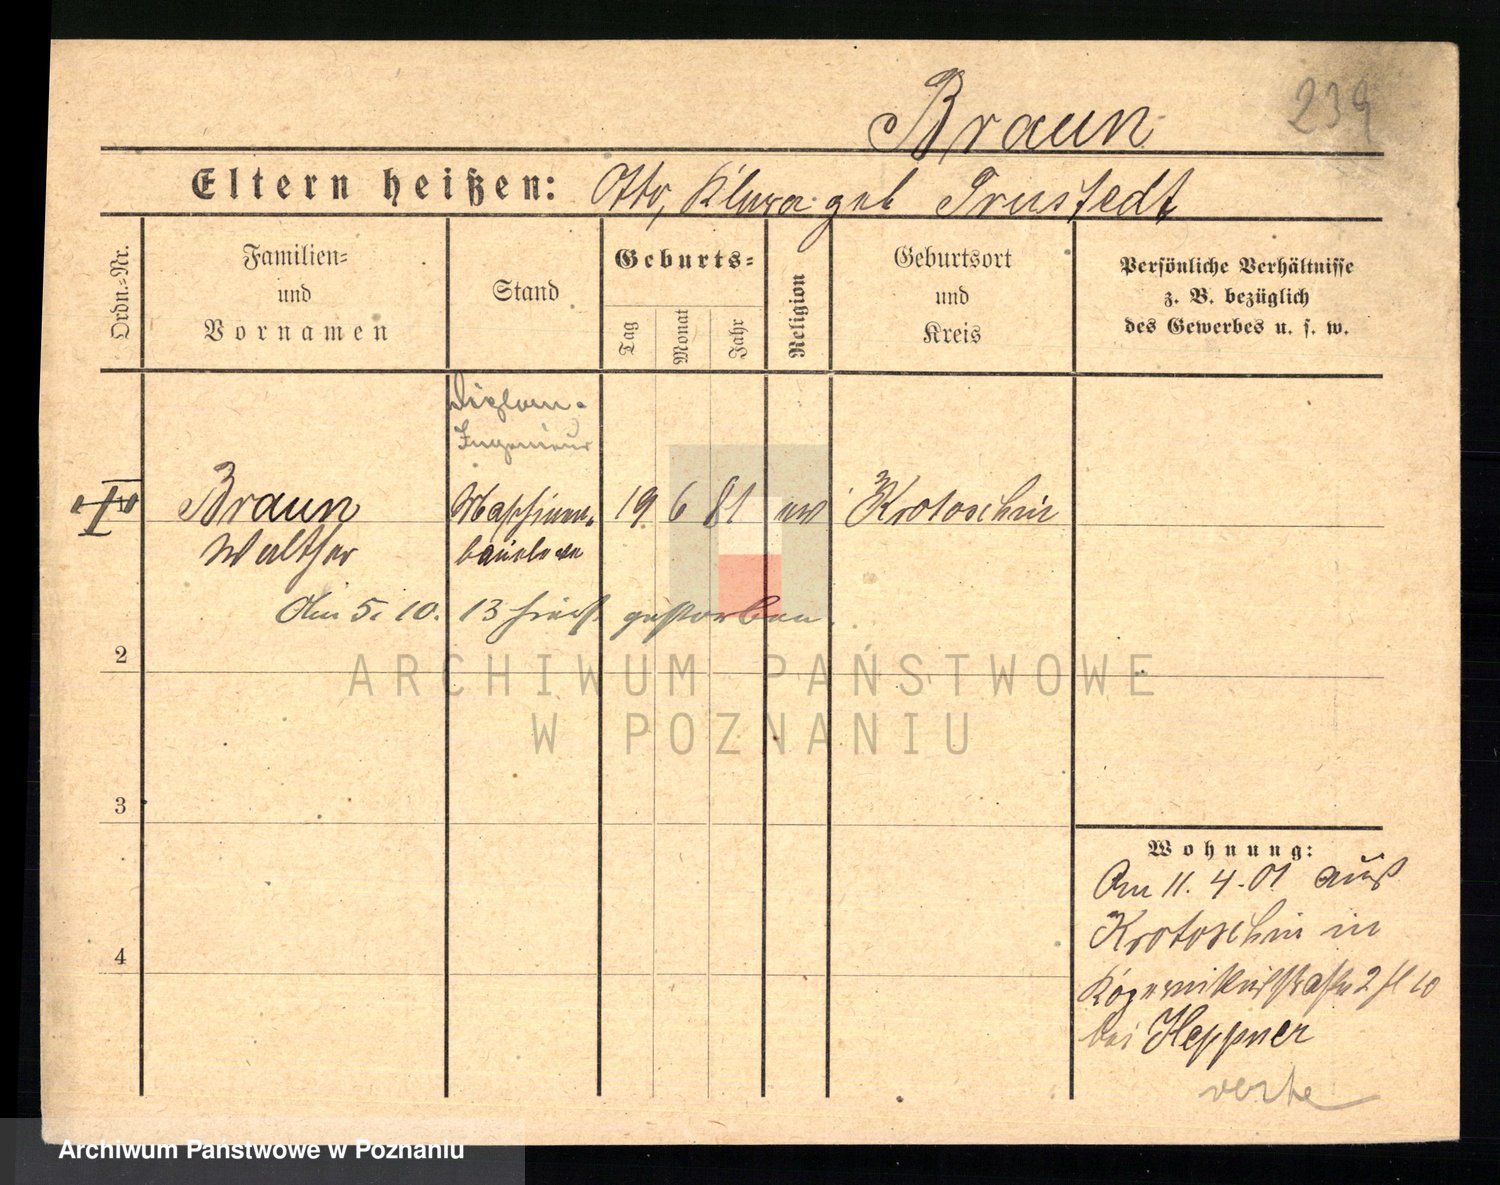 Braun
239
Eltern heißen: Otto, Klara geb Trustedt
Ordn.-Nr.
Familien-
und
Vornamen
Stand
Geburts-
Tag
Monat
Jahr
Religion
Geburtsort
und
Kreis
Persönliche Verhältnisse
z. B. bezüglich
des Gewerbes u. s. w.
Diplom-
Ingenieur
Braun
Walther
Maschinen-
19 6 81 ev
Krotoschin
Am 5. 10. 13 hier gestorben.
2
ARCHIWUM PAŃSTWOWE
W POZNANIU
3
4
Wohnung:
Am 11. 4. 01 aus
Krotoschin in
Kopernikusstraße 2 II
bei Heppner
verte
Archiwum Państwowe w Poznaniu